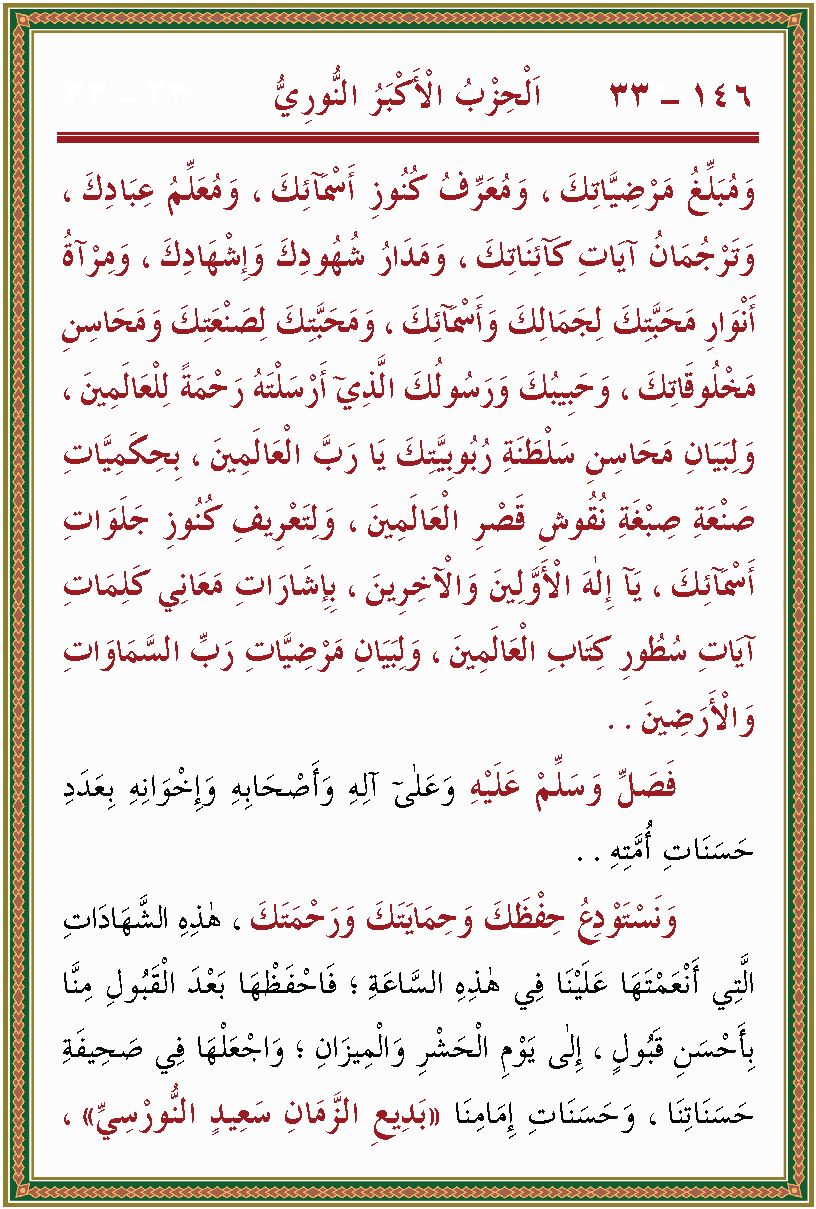 ١٤٦ – ٣٣ اَلْحِزْبُ الْأَكْبَرُ النُّورِيُّ ٣٣ – ٣٣
وَمُبَلِّغُ مَرْضِيَّاتِكَ ، وَمُعَرِّفُ كُنُوزِ أَسْمَآئِكَ ، وَمُعَلِّمُ عِبَادِكَ ،
وَتَرْجُمَانُ آيَاتِ كَآئِنَاتِكَ ، وَمَدَارُ شُهُودِكَ وَإِشْهَادِكَ ، وَمِرْآةُ
أَنْوَارِ مَحَبَّتِكَ لِجَمَالِكَ وَأَسْمَآئِكَ ، وَمَحَبَّتِكَ لِصَنْعَتِكَ وَمَحَاسِنِ
مَخْلُوقَاتِكَ ، وَحَبِيبُكَ وَرَسُولُكَ الَّذِيۤ أَرْسَلْتَهُ رَحْمَةً لِلْعَالَمِينَ ،
وَلِبَيَانِ مَحَاسِنِ سَلْطَنَةِ رُبُوبِيَّتِكَ يَا رَبَّ الْعَالَمِينَ ، بِحِكَمِيَّاتِ
صَنْعَةِ صِبْغَةِ نُقُوشِ قَصْرِ الْعَالَمِينَ ، وَلِتَعْرِيفِ كُنُوزِ جَلَوَاتِ
أَسْمَآئِكَ ، يَآ إِلٰهَ الْأَوَّلِينَ وَالْآخِرِينَ ، بِإِشَارَاتِ مَعَانِي كَلِمَاتِ
آيَاتِ سُطُورِ كِتَابِ الْعَالَمِينَ ، وَلِبَيَانِ مَرْضِيَّاتِ رَبِّ السَّمَاوَاتِ
وَالْأَرَضِينَ . .
فَصَلِّ وَسَلِّمْ عَلَيْهِ وَعَلٰىۤ آلِهِ وَأَصْحَابِهِ وَإِخْوَانِهِ بِعَدَدِ
حَسَنَاتِ أُمَّتِهِ . .
وَنَسْتَوْدِعُ حِفْظَكَ وَحِمَايَتَكَ وَرَحْمَتَكَ ، هٰذِهِ الشَّهَادَاتِ
الَّتِي أَنْعَمْتَهَا عَلَيْنَا فِي هٰذِهِ السَّاعَةِ ؛ فَاحْفَظْهَا بَعْدَ الْقَبُولِ مِنَّا
بِأَحْسَنِ قَبُولٍ ، إِلٰى يَوْمِ الْحَشْرِ وَالْمِيزَانِ ؛ وَاجْعَلْهَا فِي صَحِيفَةِ
حَسَنَاتِنَا ، وَحَسَنَاتِ إِمَامِنَا «بَدِيعِ الزَّمَانِ سَعِيدٍ النُّورْسِيِّ» ،